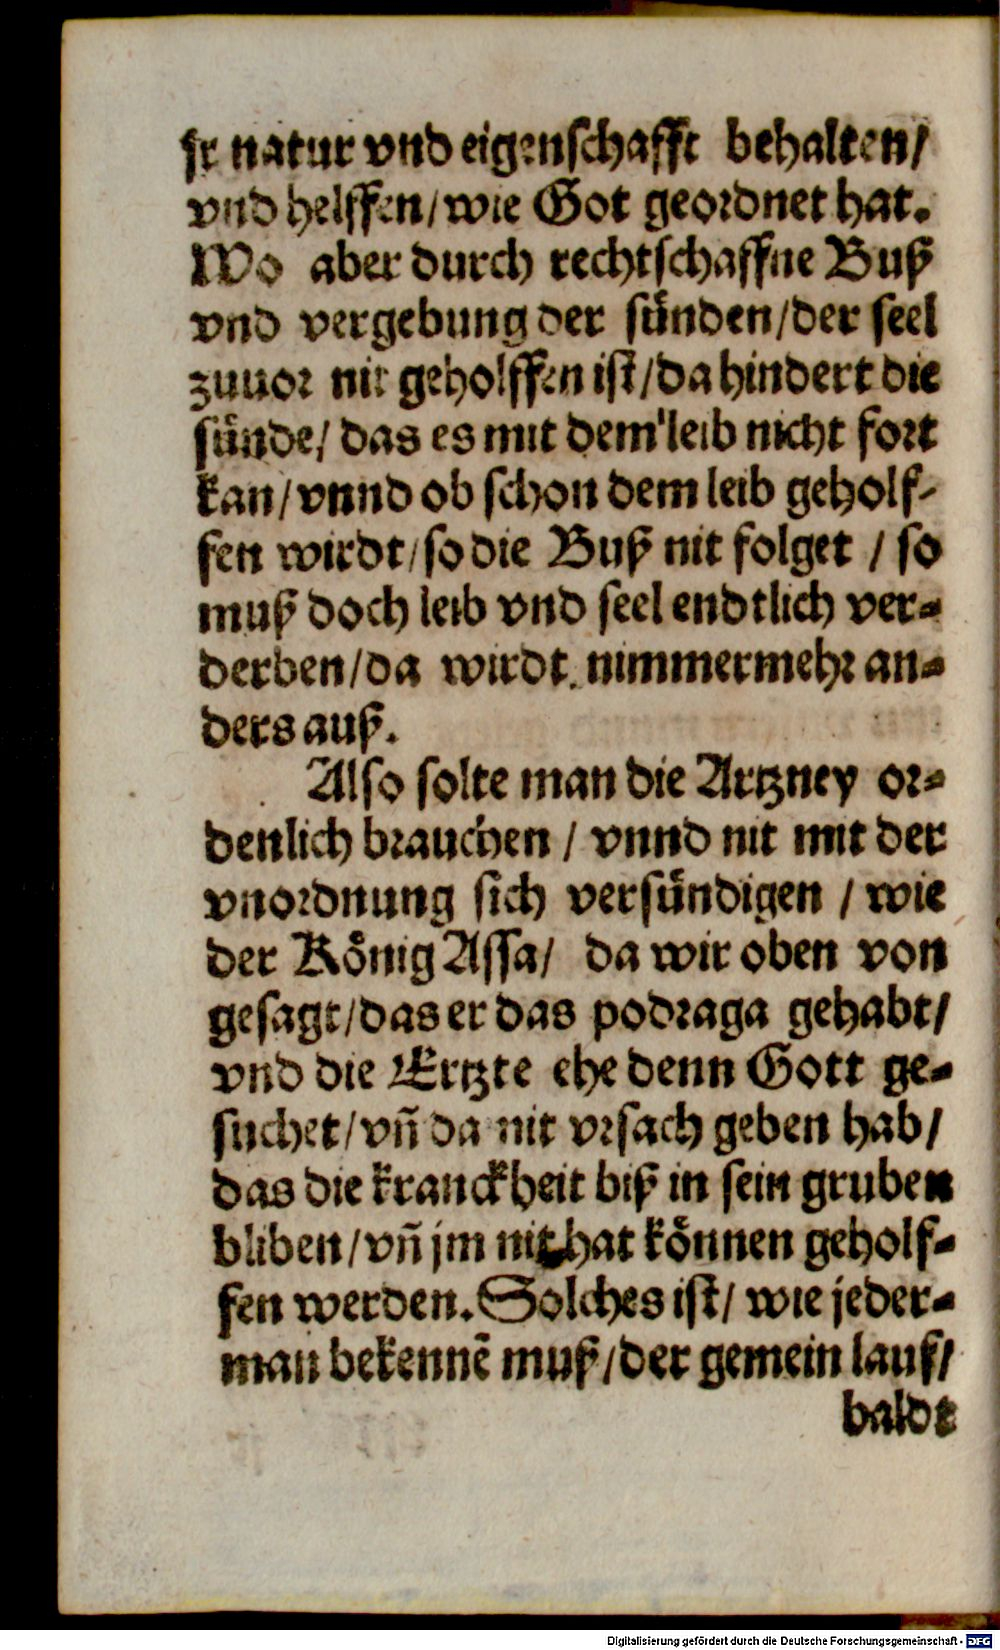 jr natur vnd eigenschafft behalten/
vnd helffen/wie Got geordnet hat.
Wo aber durch rechtschaffne Buß
vnd vergebung der sünden/der seel
zuuor nit geholffen ist/da hindert die
sünde/ das es mit dem leib nicht fort
kan/vnnd ob schon dem leib geholf-
fen wirdt/so die Buß nit folget / so
muß doch leib vnd seel endtlich ver-
derben/da wirdt nimmermehr an-
ders auß.
Also solte man die Artzney or-
denlich brauchen / vnnd nit mit der
vnordnung sich versündigen / wie
der König Assa/ da wir oben von
gesagt/das er das podraga gehabt/
vnd die Ertzte ehe denn Gott ge-
suchet/vñ da nit vrsach geben hab/
das die kranckheit biß in sein gruben
bliben/vñ jm nit hat können geholf-
fen werden. Solches ist/ wie jeder-
man bekennẽ muß/der gemein lauf/
baldt
Digitalisierung gefördert durch die Deutsche Forschungsgemeinschaft - DFG